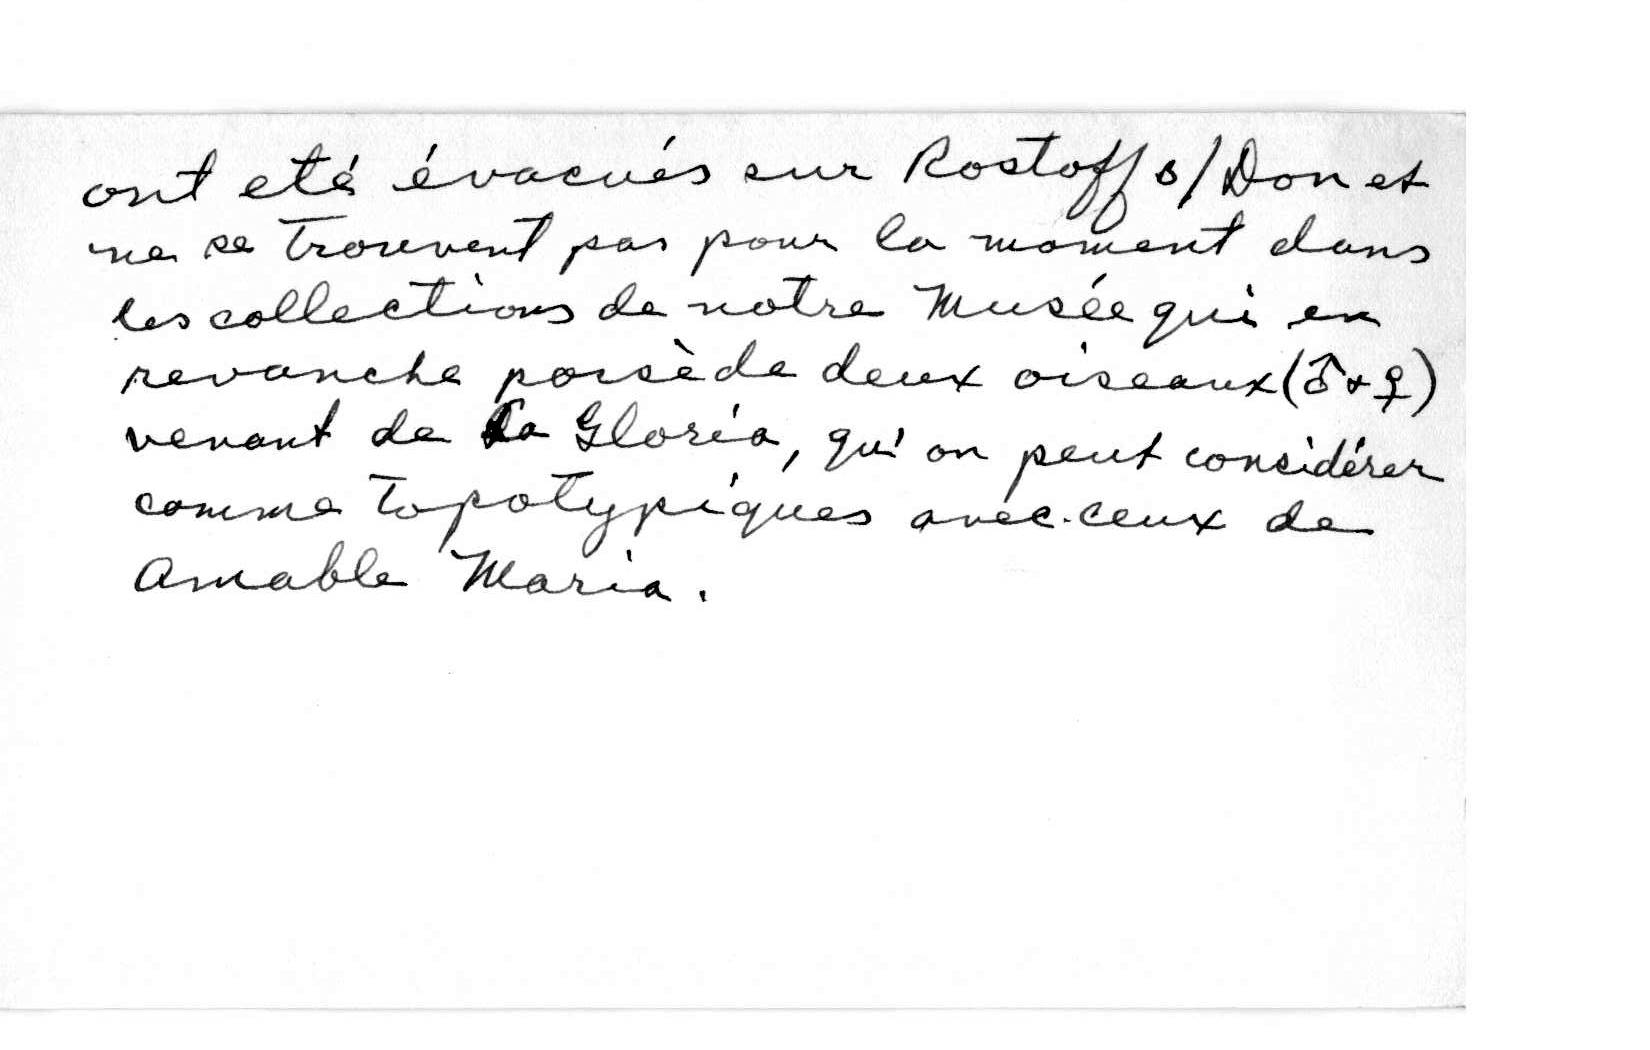 ont eté évacués sur Rostoff s/Don et
ne se trouvent pas pour le moment dans
les collections de notre Musée qui en
revanche possède deux oiseaux (♂+♀)
venant de La Gloria, qu'on peut considérer
comme topotypiques avec ceux de
Amable Maria.